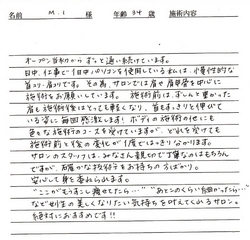 名前 M.I 様 年齢 34 歳 施術内容
オープン当初から ずっと通い続けています。
日中、仕事で1日中パソコンを使用している私は、慢性的な
首コリ・肩コリです。その為、サロンでは肩や肩甲骨を中心に
施術をお願いしています。施術前は、ずしんと重かった
肩も施術後はとっても軽くなり、首もすっきりと伸びて
いる姿に毎回感激します。ボディの施術の他にも
色々な施術のコースを受けていますが、どれを受けても
施術前と後の変化が1度ではっきりわかります。
サロンのスタッフは、みなさん親切で丁寧なのはもちろん
ですが、確かな技術をお持ちの方ばかり。
安心して身を委ねられます。
"ここがもう少し痩せたら…" "あと このくらい 細かったら…"
など女性の美しくなりたい気持ちを叶えてくれるサロン。
絶対におすすめです!!